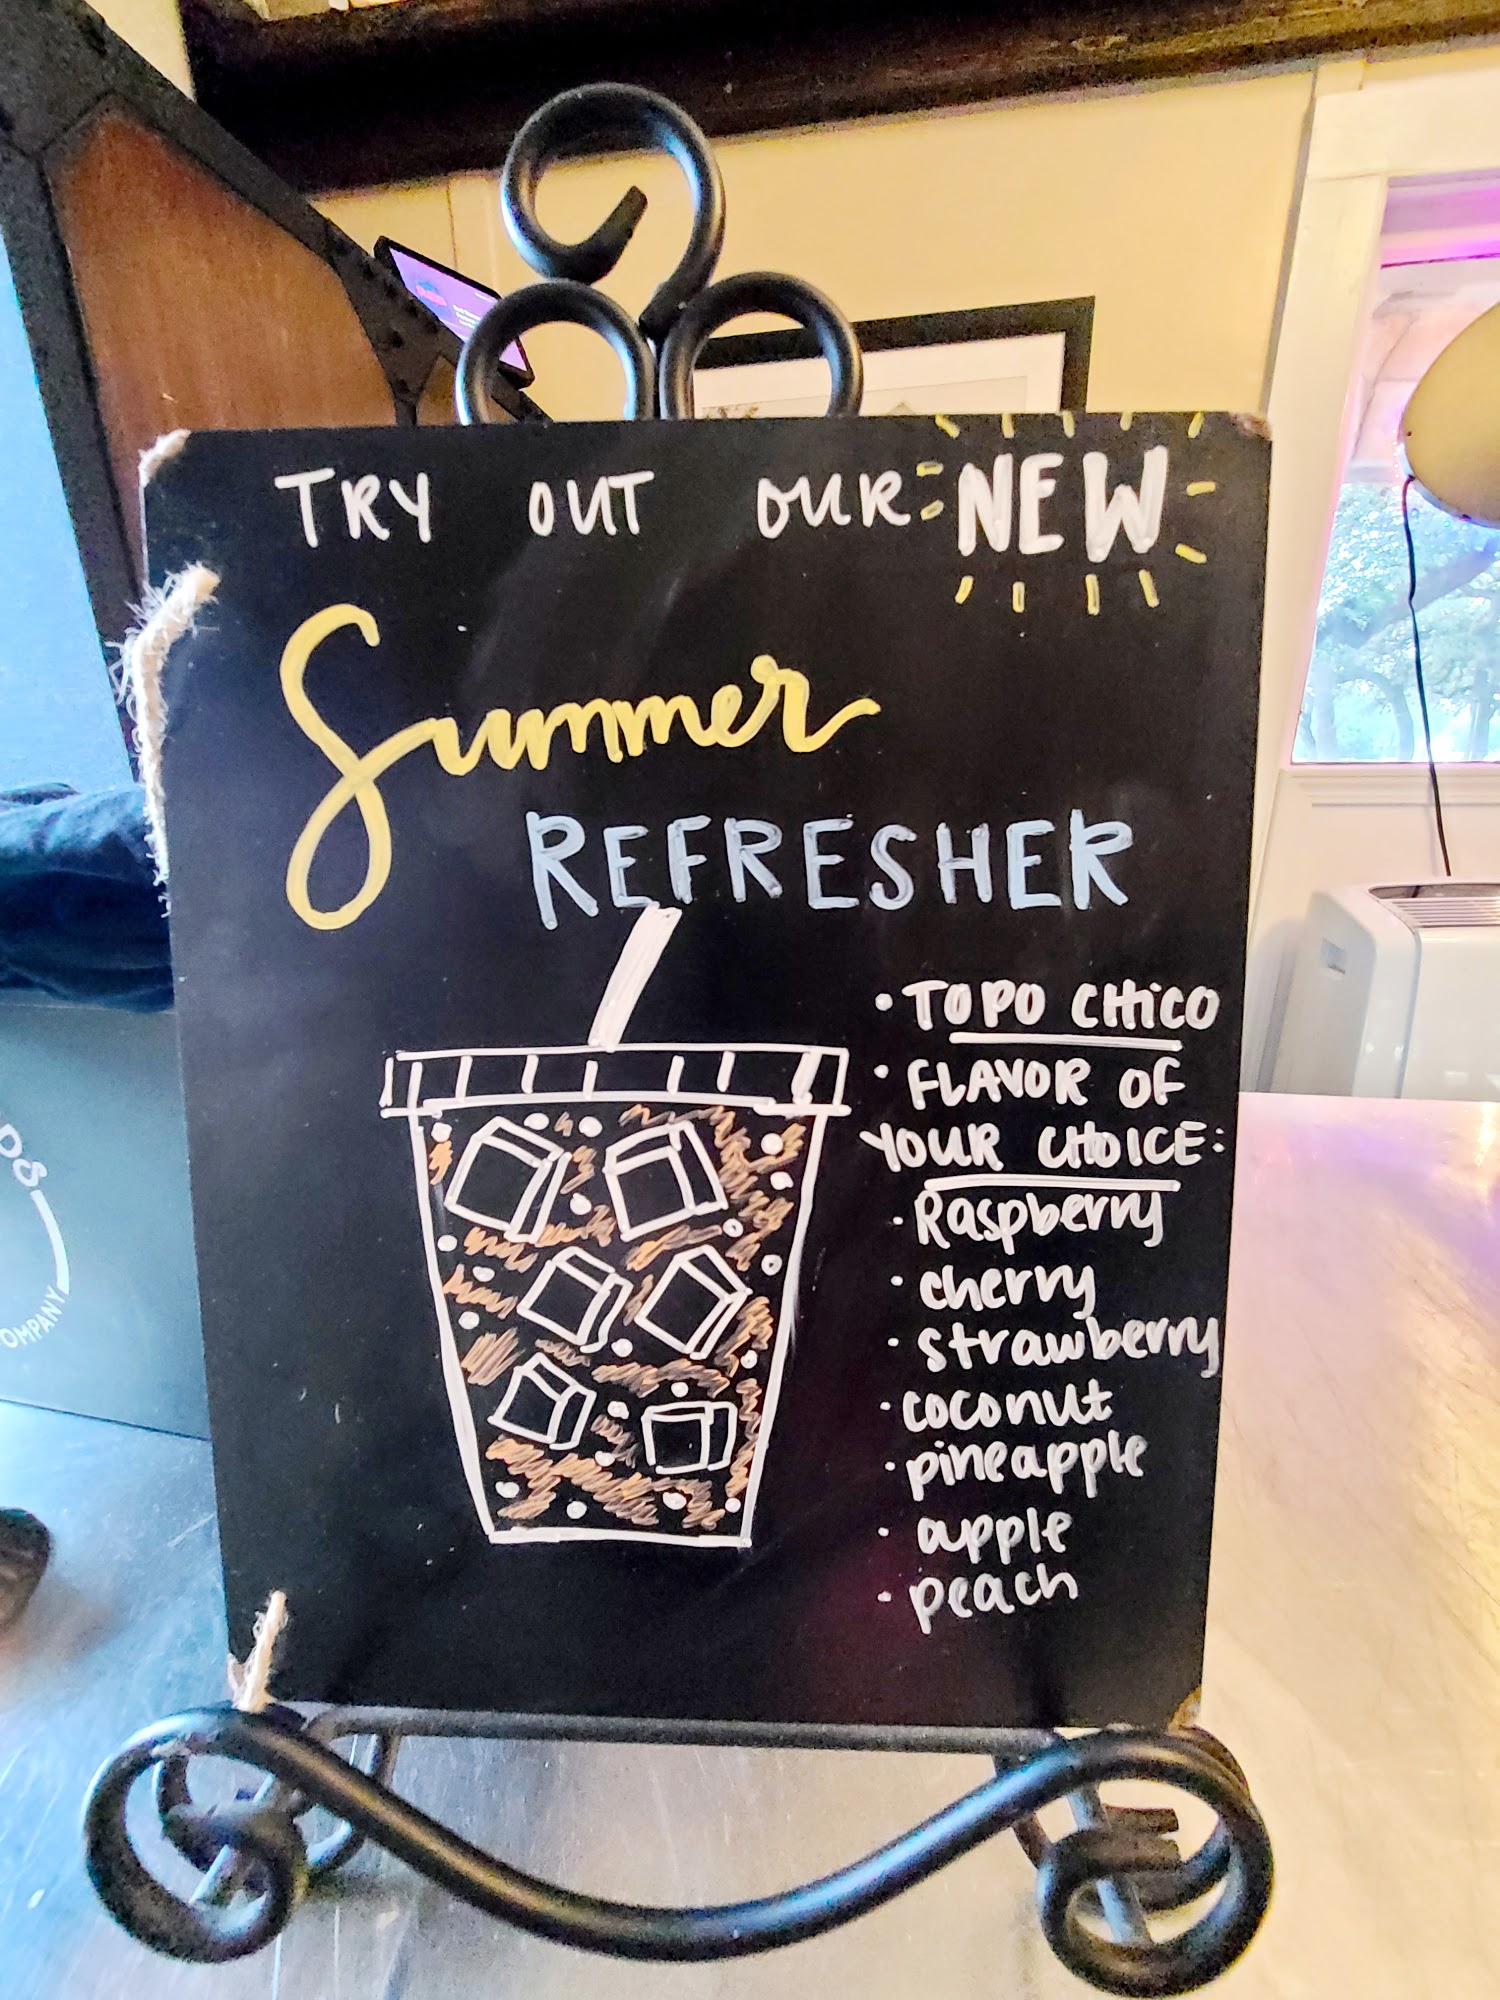 TRY OUT OUR NEW
Summer
REFRESHER
• TOPO CHICO
• FLAVOR OF
YOUR CHOICE:
• Raspberry
• cherry
• strawberry
• coconut
• pineapple
• apple
• peach